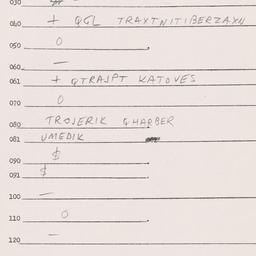 030
040 + QGL TRAXTNITIBERZAXN
050 0
060 —
061 + QTRAJPT KATOVES
070 0
080 TROJERIK GHARBER
081 UMEDIK
090 $
091 $
100 —
110 0
120 —